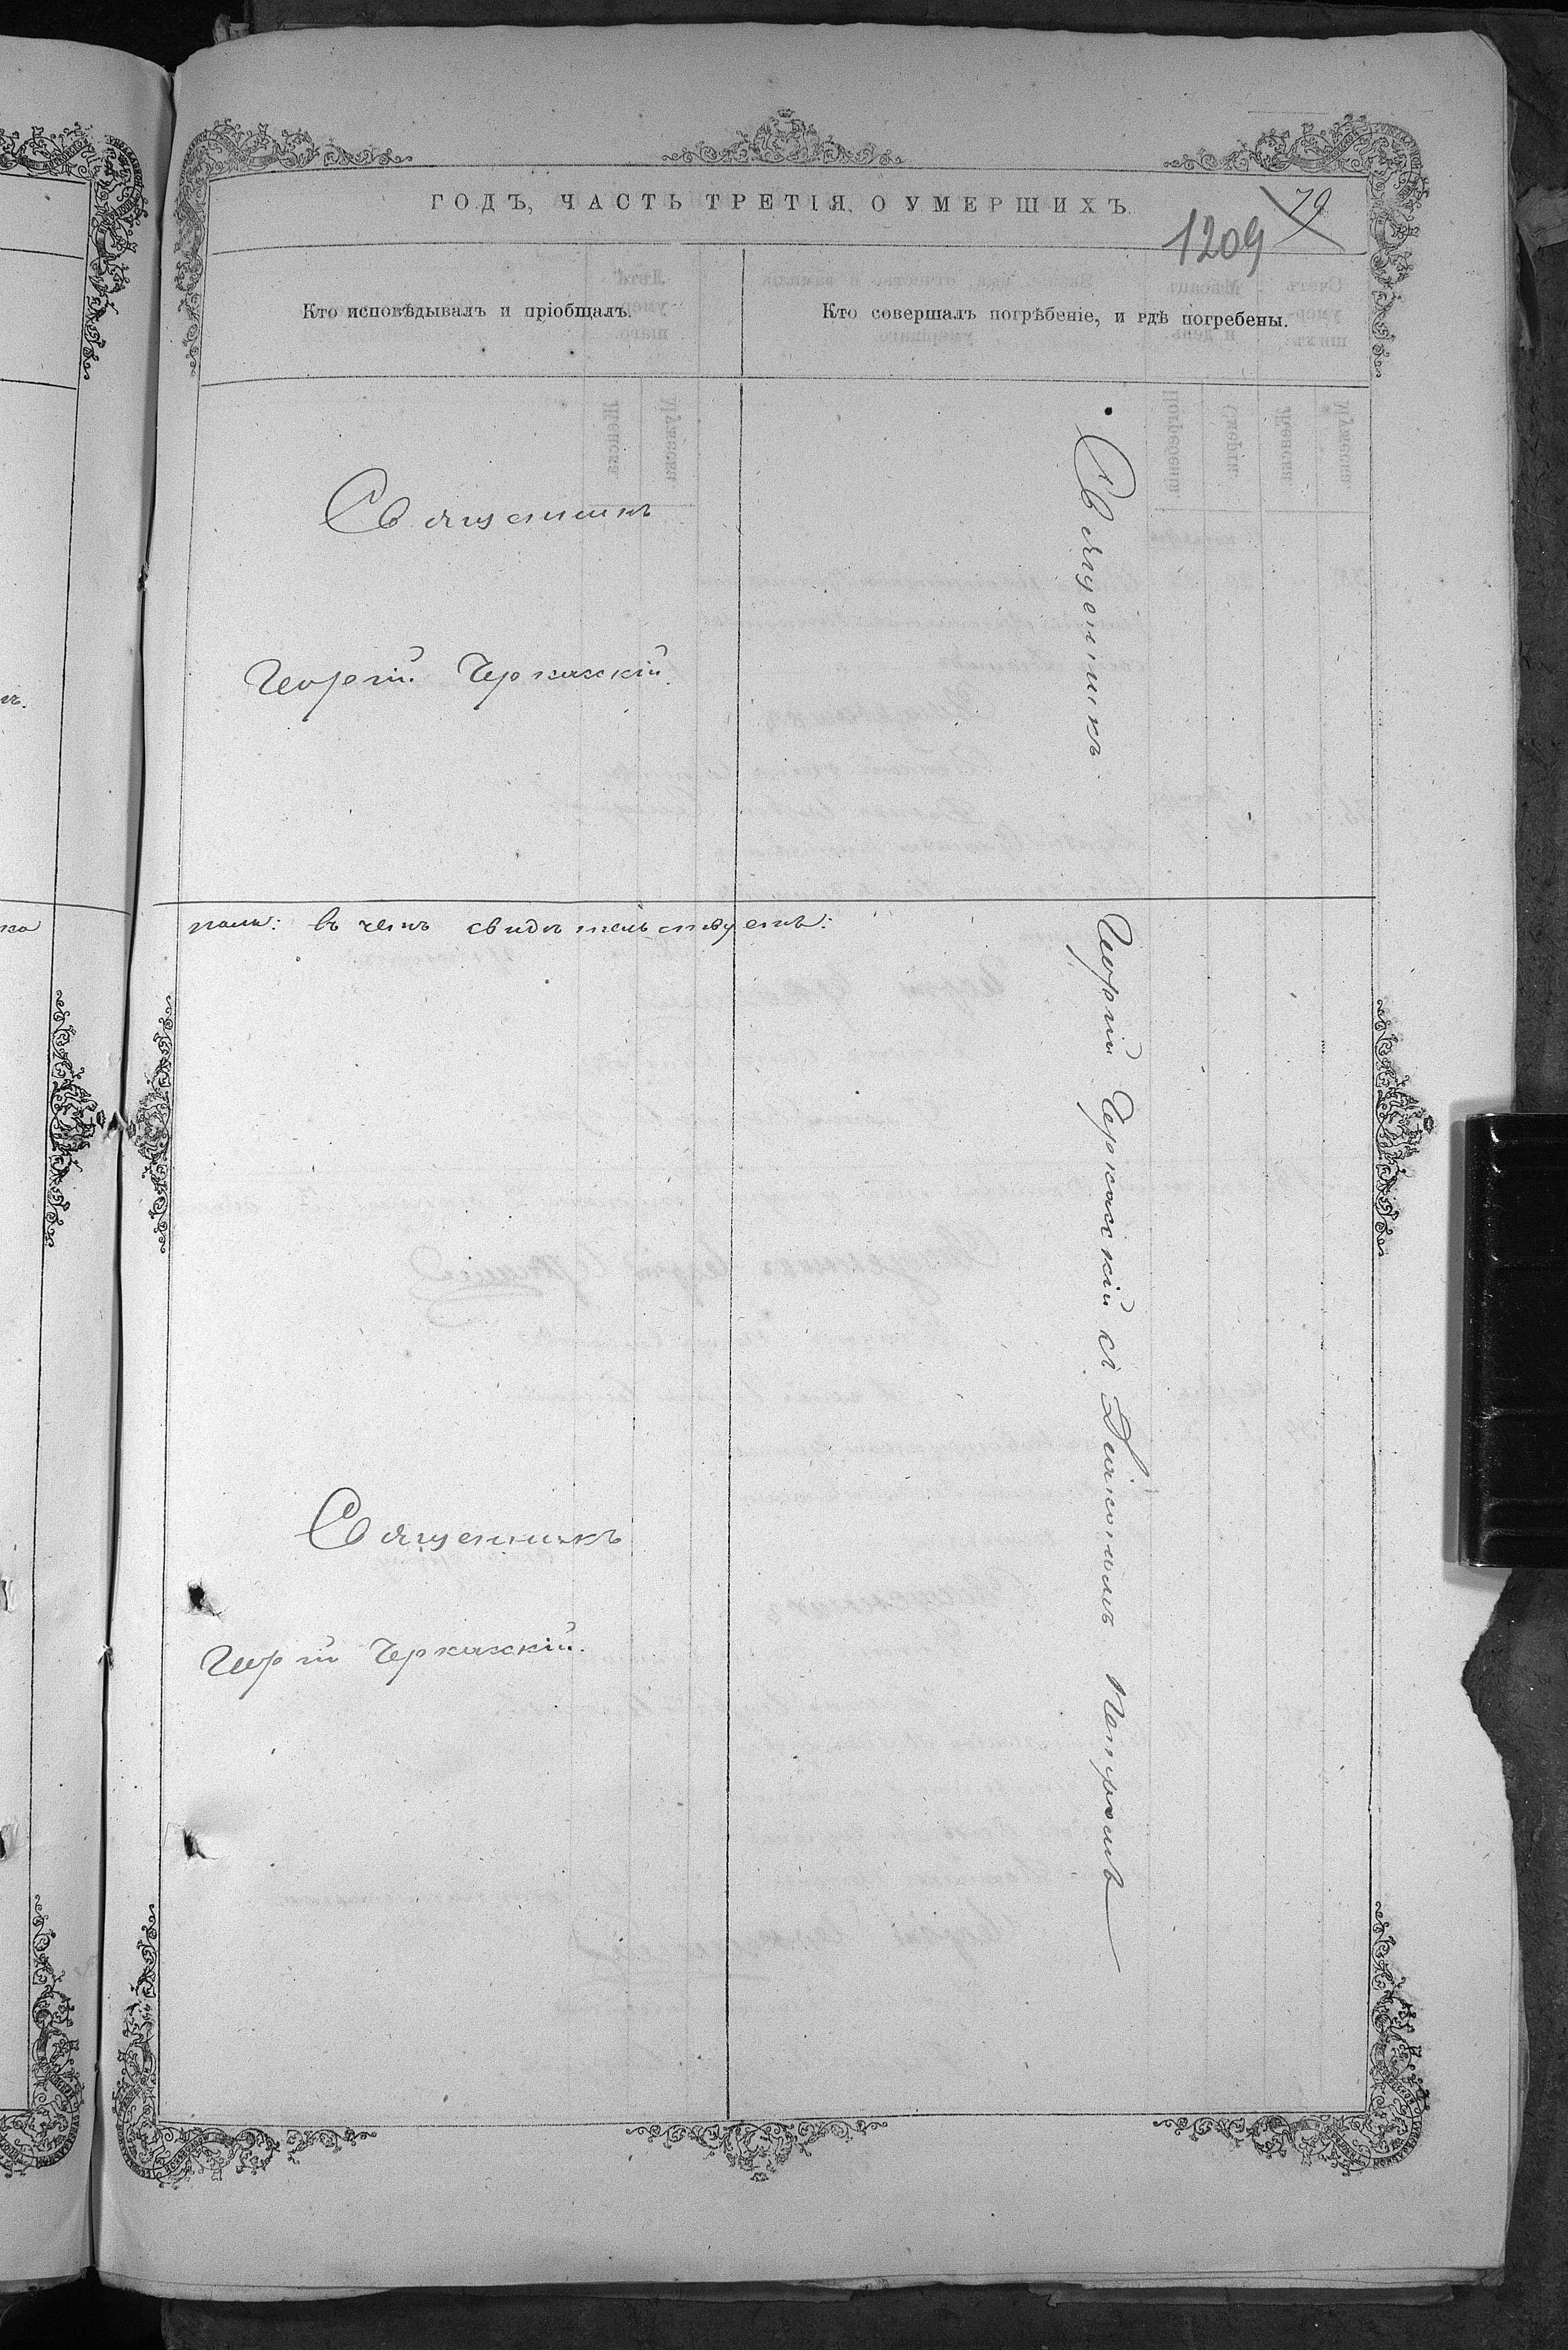 ГОДЪ, ЧАСТЬ ТРЕТІЯ, О УМЕРШИХЪ.
79
1209
Кто исповѣдывалъ и пріобщалъ.
Кто совершалъ погрѣбеніе, и гдѣ погребены.
Священникъ
Георгій Черкасскій.
Священникъ
Георгій Черкасскій съ Діакономъ Петромъ
въ чемъ свидѣтельствуемъ:
Священникъ
Георгій Черкасскій.